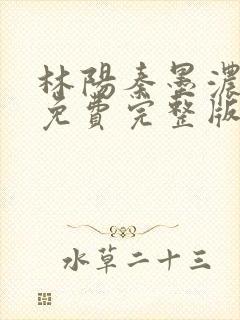 林陽秦墨濃
免費完整版
水草二十三